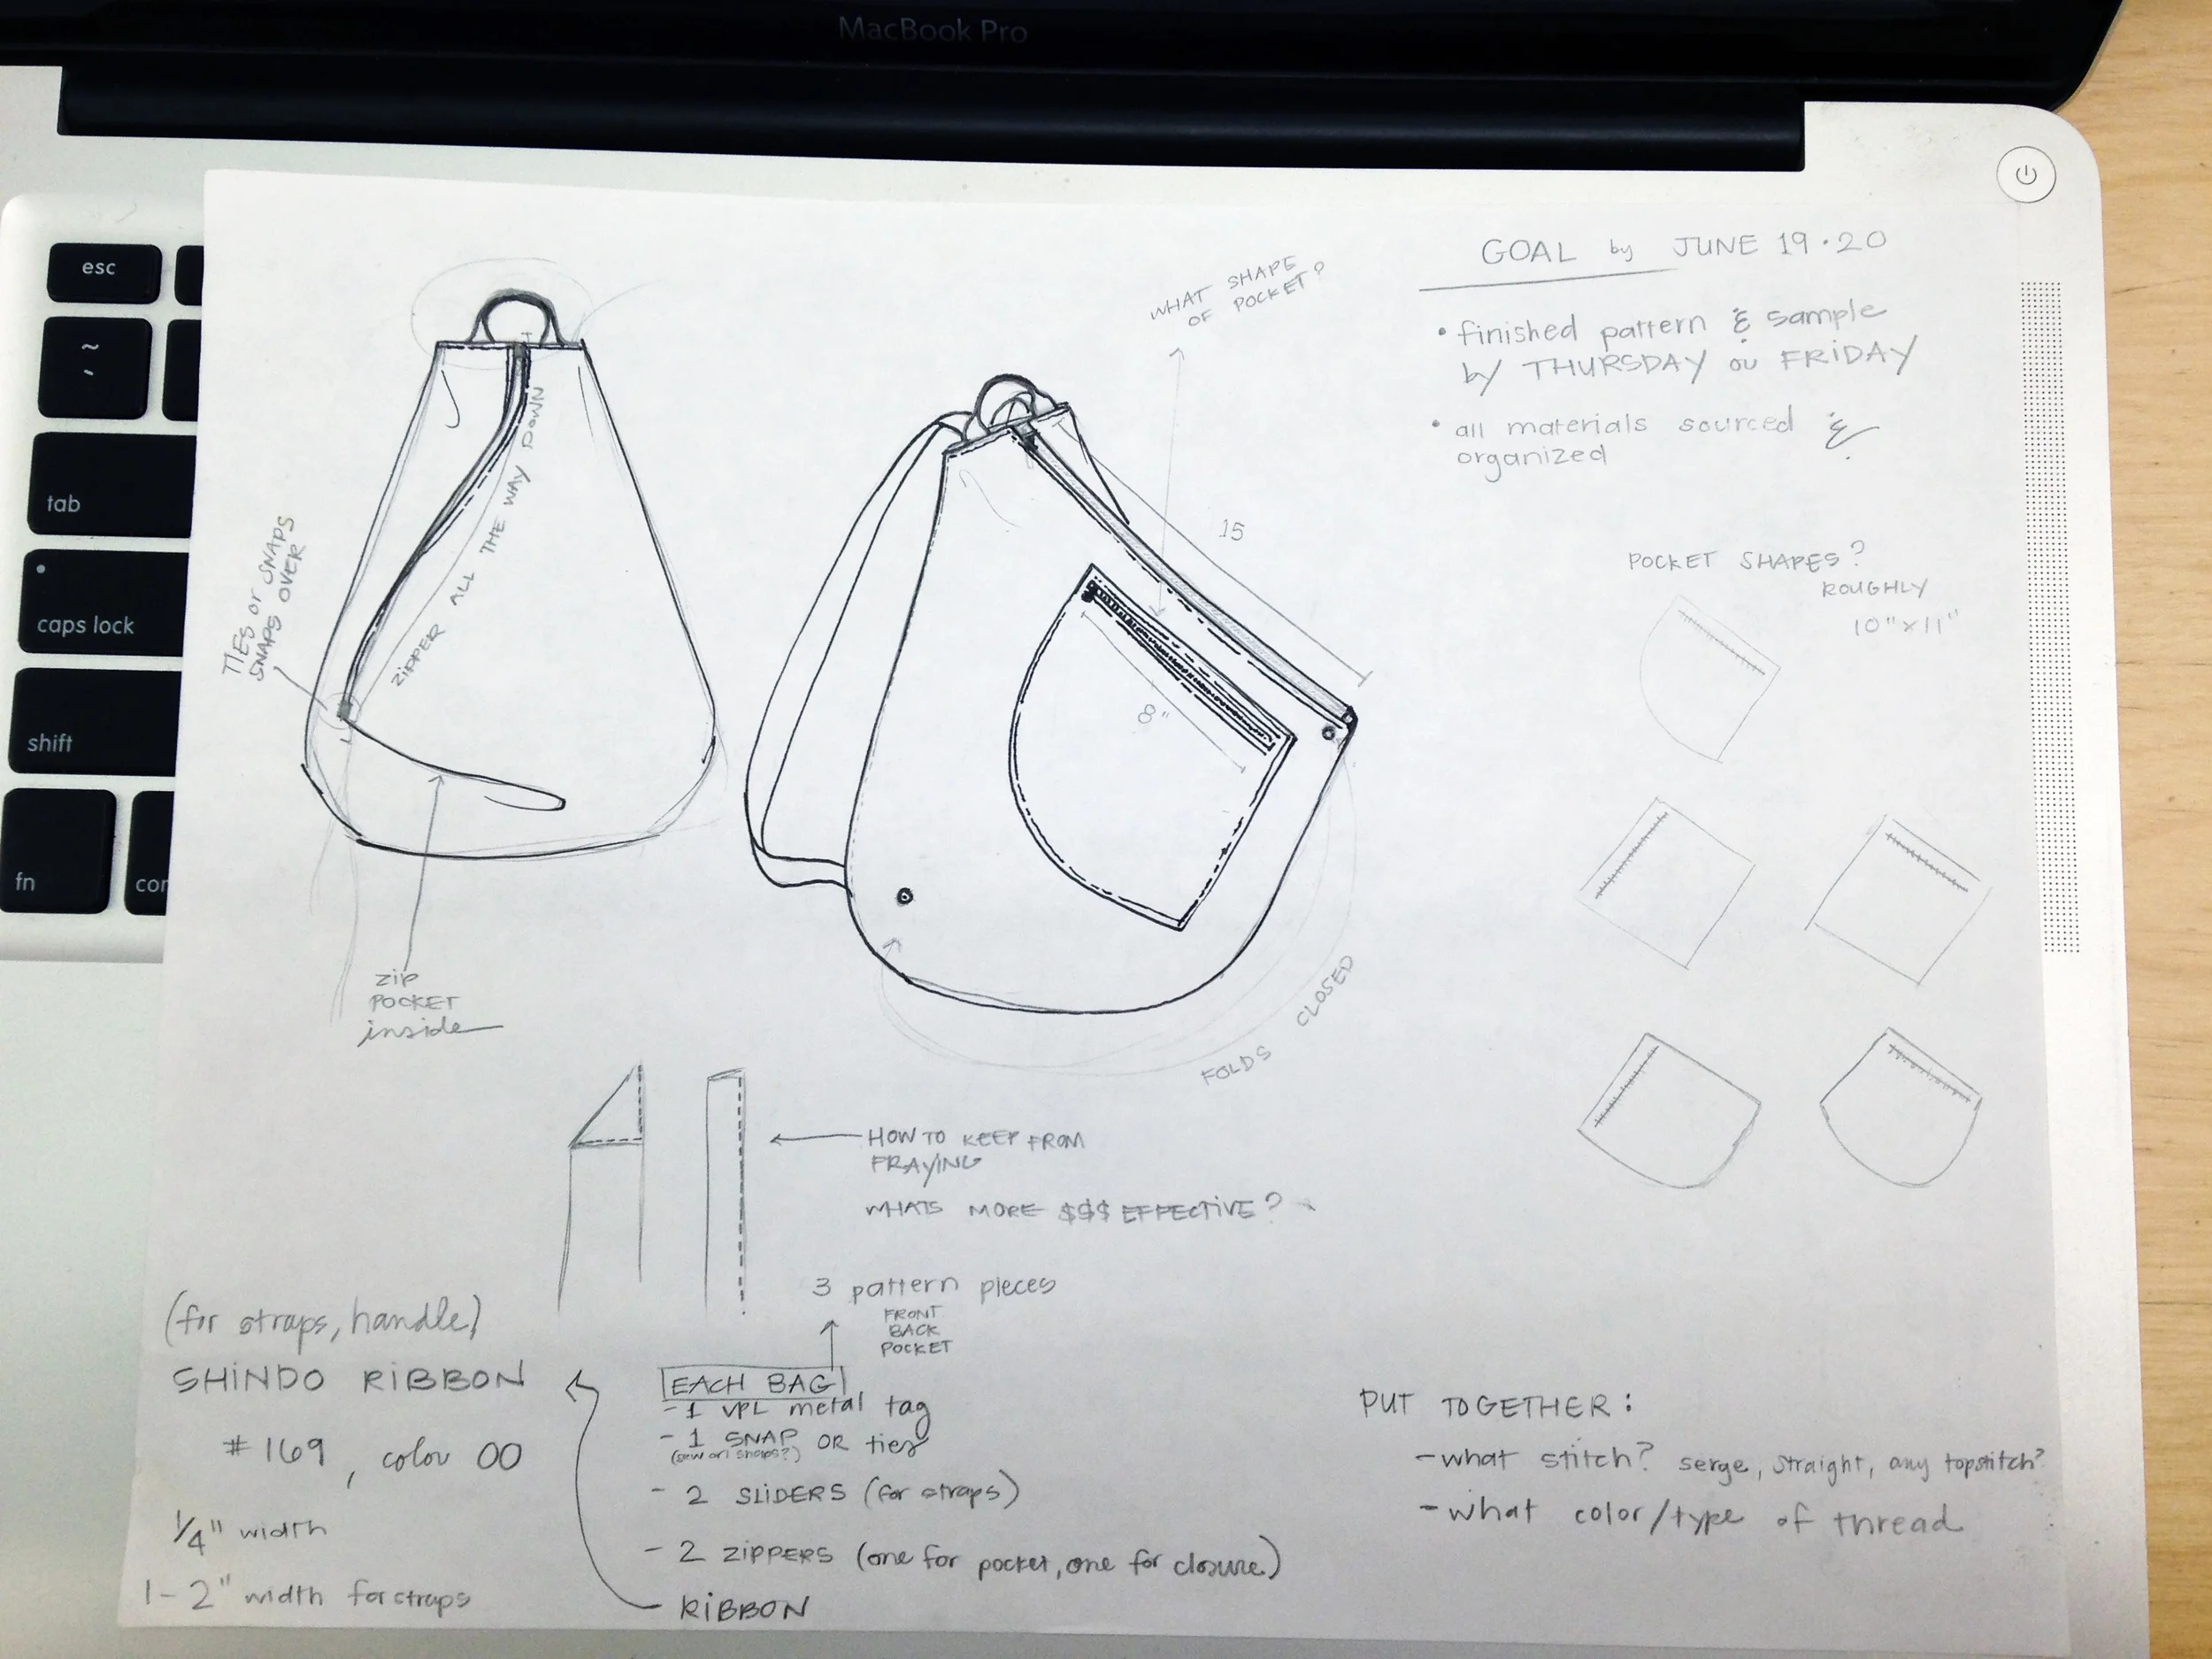 MacBook Pro
esc
~
`
tab
caps lock
shift
fn
GOAL by JUNE 19 • 20
• finished pattern & sample
by THURSDAY ou FRIDAY
• all materials sourced &
organized
WHAT SHAPE
OF POCKET?
ZIPPER ALL THE WAY DOWN
TIES or SNAPS
SNAPS OVER
zip
POCKET
inside
15
8"
FOLDS CLOSED
POCKET SHAPES?
ROUGHLY
10" x 11"
HOW TO KEEP FROM
FRAYING
WHATS MORE $$$ EFFECTIVE?
3 pattern pieces
FRONT
BACK
POCKET
(for straps, handle)
SHINDO RIBBON
# 169, color 00
1/4" width
1-2" width for straps
EACH BAG
- 1 VPL metal tag
- 1 SNAP OR ties
- 2 SLIDERS (for straps)
- 2 ZIPPERS (one for pocket, one for closure)
RIBBON
PUT TOGETHER:
- what stitch? serge, straight, any topstitch?
- what color/type of thread